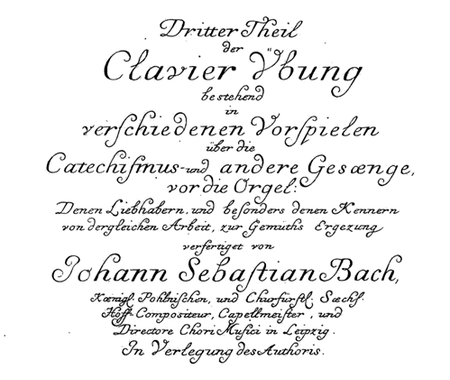 Dritter Theil
der
Clavier Übung
bestehend
in
verschiedenen Vorspielen
über die
Catechismus- und andere Gesænge,
vor die Orgel:
Denen Liebhabern, und besonders denen Kennern
von dergleichen Arbeit, zur Gemüths Ergezung
verfertiget von
Johann Sebastian Bach,
Kœnigl. Pohlnischen, und Churfürstl. Sæchs.
Hoff-Compositeur, Capellmeister, und
Directore Chori Musici in Leipzig.
In Verlegung des Authoris.